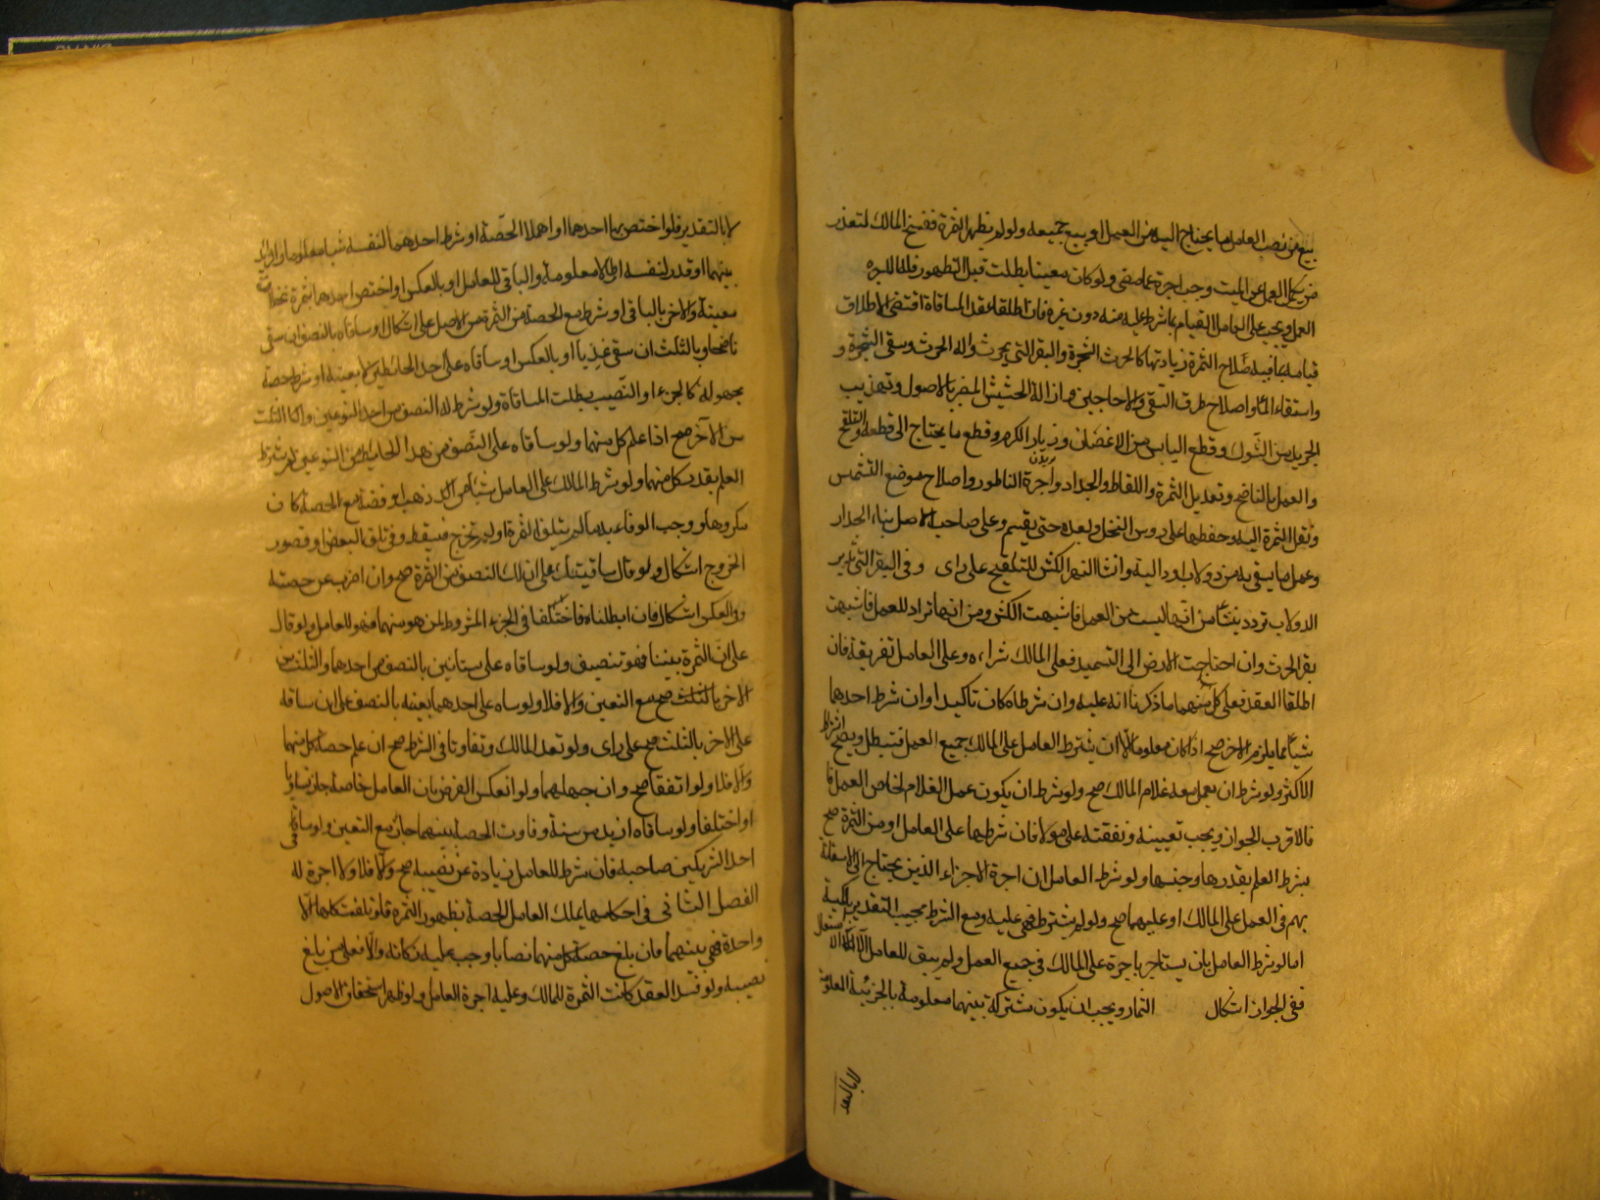 بيع من نصيب العامل ما يحتاج اليه من العمل او بيع جميعه ولو لم يظهر الثمرة ففسخ المالك لتعذر
من يكمل العمل عن الميت وجب اجرة عما مضى ولو كان معينا بطلت قبل الظهور
العمل ويجب على العامل القيام بما شرط عليه منه دون غيره فان اطلقا عقد المساقاة اقتضى الاطلاق
قيامه بما فيه صلاح الثمرة وزيادتها كالحرث الشجرة والبقر التي يحرث واله الحرث وسقى الشجرة و
واستقاء الماء واصلاح طرق السقى والاجاجين وازالة الحشيش المضر بالاصول وتهذيب
الجريد من الشوك وقطع اليابس من الاغصان وزبار الكرم وقطع ما يحتاج الى قطعه والتلقيح
والعمل بالناضح وتعديل الثمرة واللقاط والجداد واجرة الناطور واصلاح موضع التشمس
ونقل الثمرة اليه وحفظها على روس النخل وبعده حتى يقسم وعلى صاحب الاصل بناء الجدار
وعمل ما يسقى به من دولاب او دالية وانشا النهر الكش للتلقيح على راى وفى البقر التي تدير
الدولاب تردد ينشا من انها ليست من العمل فاشبهت الكش ومن انها تراد للعمل فاشبهت
بقر الحرث وان احتاجت الارض الى التسميد فعلى المالك شراءه وعلى العامل تفريقه فان
اطلقا العقد فعلى كل منهما ما ذكرنا انه عليه وان شرطاه كان تاكيدا وان شرط احدهما
شيأ مما يلزم الاخر صح اذا كان معلوما الا ان يشترط العامل على المالك جميع العمل فتبطل ويصح اشتراط
الاكثر ولو شرط ان يعمل معه غلام المالك صح ولو شرط ان يكون عمل الغلام لخاص العامل
فالاقرب الجواز ويجب تعيينه ونفقته على مولاه فان شرطها على العامل او من الثمرة صح
بشرط العلم بقدرها وجنسها ولو شرط العامل ان اجرة الاجراء الذين يحتاج الى الاستعانة
بهم فى العمل على المالك او عليهما صح ولو لم يشترط فهى عليه ومع الشرط يجب التقدير
اما لو شرط العامل بان يستاجر باجرة على المالك فى جميع العمل ولم يبق للعامل الا
ففى الجواز اشكال الثمار ويجب ان يكون مشتركة بينهما معلومة بالجزئية المعلومة
لا بالتقدير
لا بالتقدير فلو اختص بها احدهما او اهملا الحصة او شرط احدهما لنفسه شيا معلوما والزايد
بينهما او قدر لنفسه ارطالا معلومة والباقى للعامل او بالعكس او اختص احدهما بثمرة نخلات
معينة والاخر بالباقى او شرط مع الحصة من الثمرة من الاصل على اشكال او ساقاه بالنصف ان سقى
ناضحا وبالثلث ان سقى عذيا او بالعكس او ساقاه على احد الحائطين لا بعينه او شرط حصة
مجهولة كالجزء او النصيب بطلت المساقاة ولو شرط له النصف من احد النوعين والثلث
من الآخر صح اذا علم كل منهما ولو ساقاه على النصف من هذا الحايط من النوعين لم يشترط
العلم بقدر كل منهما ولو شرط المالك على العامل شيأ من ذهب او فضة مع الحصة كان
مكروها ووجب الوفا به ما لم يتلف الثمرة او لم تخرج فيسقط وفى تلف البعض او قصور
الخروج اشكال ولو قال ساقيتك على ان لك النصف من الثمرة صح وان اضرب عن حصته
وفى العكس اشكال فان ابطلناه فاختلفا فى الجزء المشروط لمن هو منهما فهو للعامل ولو قال
على ان الثمرة بيننا فهو تنصيف ولو ساقاه على بستانين بالنصف من احدهما والثلث من
الاخر بالثلث صح مع التعين والا فلا ولو ساقاه على احدهما بعينه بالنصف على ان ساقه
على الاخر بالثلث صح على راى ولو تعدد المالك وتفاوتا فى الشرط صح ان علم حصة كل منهما
والا فلا ولو اتفقا صح وان جهلهما ولو انعكس الفرض بان تعدد العامل خاصة جاز تساويا
او اختلفا ولو ساقاه ازيد من سنة وفاوت الحصة بينهما جاز مع التعين ولو ساقى
احد الشريكين صاحبه فان شرط للعامل زيادة عن نصيبه صح والا فلا ولا اجرة له
الفصل الثانى فى احكامها يملك العامل الحصة بظهور الثمرة فلو تلفت كلها الا
واحدة فهى بينهما فان بلغ حصة كل منهما نصابا وجب عليه زكاته والا فعلى من بلغ
نصيبه ولو فسد العقد كانت الثمرة للمالك وعليه اجرة العامل ولو ظهر استحقاق الاصول